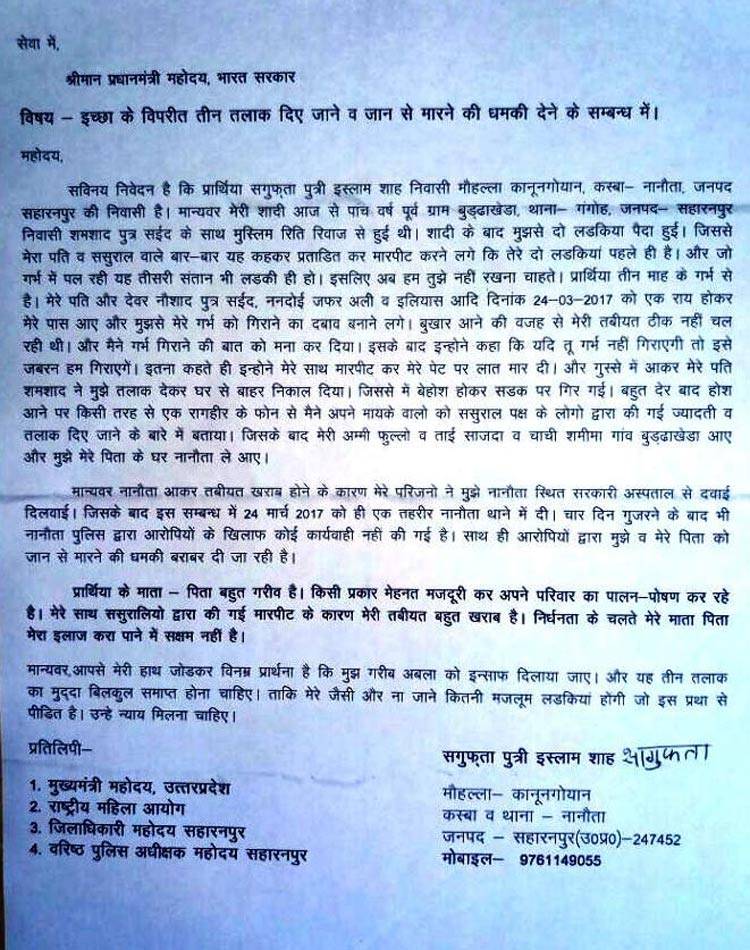 सेवा में,
श्रीमान प्रधानमंत्री महोदय, भारत सरकार
विषय – इच्छा के विपरीत तीन तलाक दिए जाने व जान से मारने की धमकी देने के सम्बन्ध में।
महोदय,
सविनय निवेदन है कि प्रार्थिया सगुफ्ता पुत्री इस्लाम शाह निवासी मौहल्ला कानूनगोयान, कस्बा– नानौता, जनपद
सहारनपुर की निवासी है। मान्यवर मेरी शादी आज से पाच वर्ष पूर्व ग्राम बुड्ढाखेडा, थाना– गंगोह, जनपद– सहारनपुर
निवासी शमशाद पुत्र सईद के साथ मुस्लिम रिति रिवाज से हुई थी। शादी के बाद मुझसे दो लडकिया पैदा हुई। जिससे
मेरा पति व ससुराल वाले बार–बार यह कहकर प्रताडित कर मारपीट करने लगे कि तेरे दो लडकियां पहले ही है। और जो
गर्भ में पल रही यह तीसरी संतान भी लडकी ही हो। इसलिए अब हम तुझे नहीं रखना चाहते। प्रार्थिया तीन माह के गर्भ से
है। मेरे पति और देवर नौशाद पुत्र सईद, ननदोई जफर अली व इलियास आदि दिनांक 24-03-2017 को एक राय होकर
मेरे पास आए और मुझसे मेरे गर्भ को गिराने का दबाव बनाने लगे। बुखार आने की वजह से मेरी तबीयत ठीक नहीं चल
रही थी। और मैने गर्भ गिराने की बात को मना कर दिया। इसके बाद इन्होने कहा कि यदि तू गर्भ नहीं गिराएगी तो इसे
जबरन हम गिराएगें। इतना कहते ही इन्होने मेरे साथ मारपीट कर मेरे पेट पर लात मार दी। और गुस्से में आकर मेरे पति
शमशाद ने मुझे तलाक देकर घर से बाहर निकाल दिया। जिससे में बेहोश होकर सडक पर गिर गई। बहुत देर बाद होश
आने पर किसी तरह से एक रागहीर के फोन से मैने अपने मायके वालो को ससुराल पक्ष के लोगो द्वारा की गई ज्यादती व
तलाक दिए जाने के बारे में बताया। जिसके बाद मेरी अम्मी फुल्लो व ताई साजदा व चाची शमीमा गांव बुड्ढाखेडा आए
और मुझे मेरे पिता के घर नानौता ले आए।
मान्यवर नानौता आकर तबीयत खराब होने के कारण मेरे परिजनो ने मुझे नानौता स्थित सरकारी अस्पताल से दवाई
दिलवाई। जिसके बाद इस सम्बन्ध में 24 मार्च 2017 को ही एक तहरीर नानौता थाने में दी। चार दिन गुजरने के बाद भी
नानौता पुलिस द्वारा आरोपियों के खिलाफ कोई कार्यवाही नहीं की गई है। साथ ही आरोपियों द्वारा मुझे व मेरे पिता को
जान से मारने की धमकी बराबर दी जा रही है।
प्रार्थिया के माता – पिता बहुत गरीव है। किसी प्रकार मेहनत मजदूरी कर अपने परिवार का पालन–पोषण कर रहे
है। मेरे साथ ससुरालियो द्वारा की गई मारपीट के कारण मेरी तबीयत बहुत खराब है। निर्धनता के चलते मेरे माता पिता
मेरा इलाज करा पाने में सक्षम नहीं है।
मान्यवर,आपसे मेरी हाथ जोडकर विनम्र प्रार्थना है कि मुझ गरीब अबला को इन्साफ दिलाया जाए। और यह तीन तलाक
का मुद्दा बिलकुल समाप्त होना चाहिए। ताकि मेरे जैसी और ना जाने कितनी मजलूम लडकियां होंगी जो इस प्रथा से
पीडित है। उन्हे न्याय मिलना चाहिए।
प्रतिलिपी–
सगुफ्ता पुत्री इस्लाम शाह शगुफता
1. मुख्यमंत्री महोदय, उत्तरप्रदेश
2. राष्ट्रीय महिला आयोग
3. जिलाधिकारी महोदय सहारनपुर
4. वरिष्ठ पुलिस अधीक्षक महोदय सहारनपुर
मौहल्ला– कानूनगोयान
कस्बा व थाना – नानौता
जनपद – सहारनपुर(उ०प्र०)–247452
मोबाइल– 9761149055